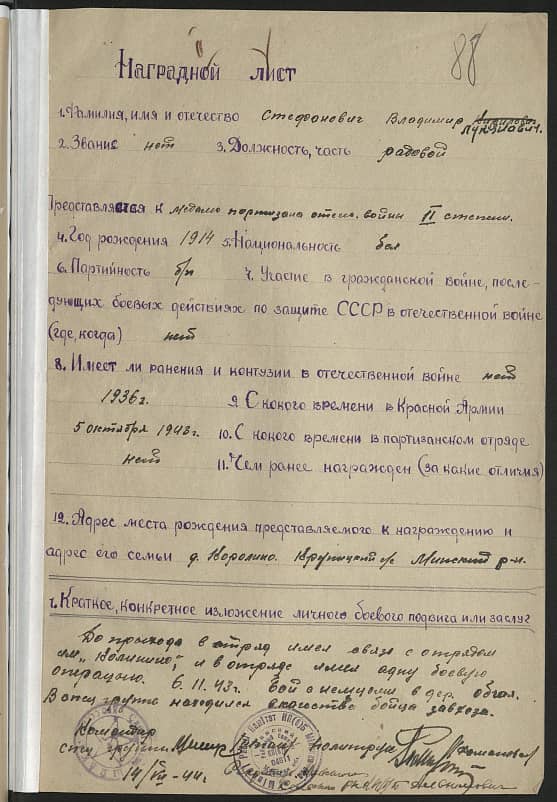 88
Наградной лист
1. Фамилия, имя и отчество Стефонович Владимир Лукъянович.
2. Звание нет 3. Должность, часть рядовой
Представляется к медали партизана отеч. войны II степени.
4. Год рождения 1914 5. Национальность бел
6. Партийность б/п 7. Участие в гражданской войне, после-
дующих боевых действиях по защите СССР в отечественной войне
(где, когда) нет
8. Имеет ли ранения и контузии в отечественной войне нет
1936 г. 9. С какого времени в Красной Армии
5 октября 1943 г. 10. С какого времени в партизанском отряде
нет 11. Чем ранее награжден (за какие отличия)
12. Адрес места рождения представляемого к награждению и
адрес его семьи д. Королино. Минский р-н.
1. Краткое, конкретное изложение личного боевого подвига или заслуг
До прихода в отряд имел связь с отрядом
им. "Калинина", и в отряде имел одну боевую
операцию. 6.11.43 г. Бой с немцами в дер.
В спец группе находился в качестве бойца завхоза.
спец. группы
14/VII-44 г.